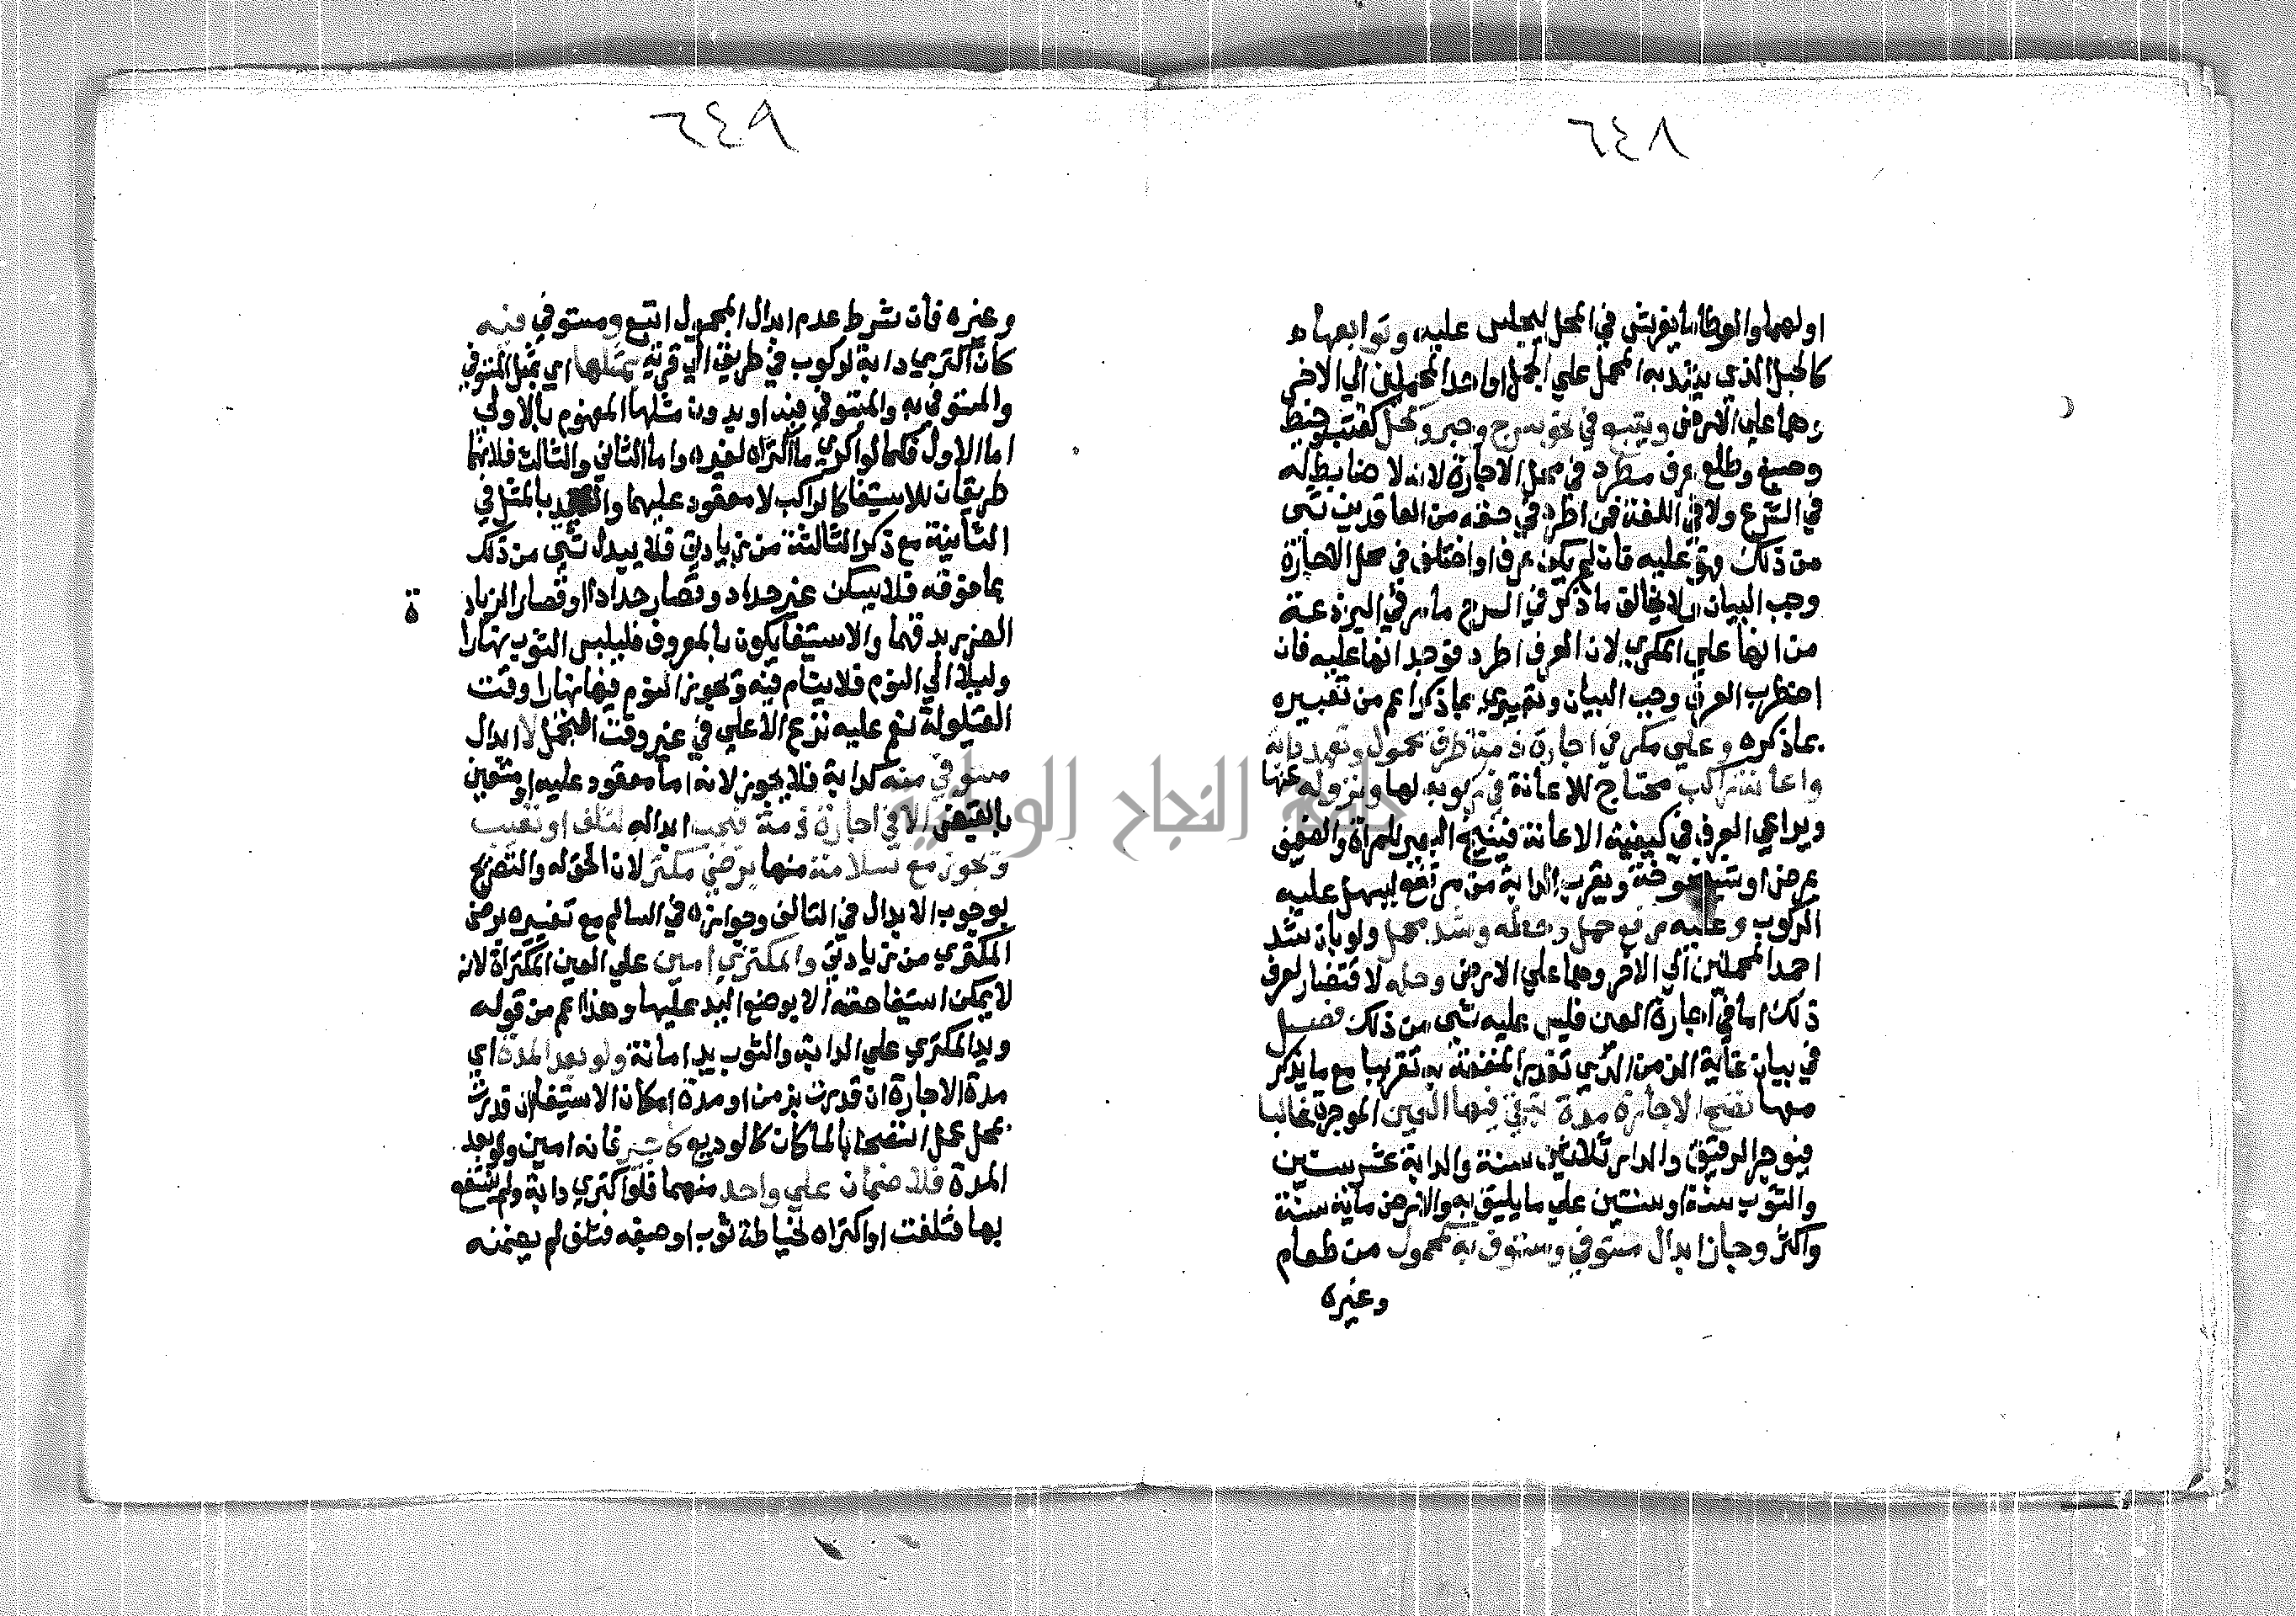 ٦٤٨
اولهما والوطا ما يفرش في المحمل ليجلس عليه وتوابعها
كالحبل الذي يشد به المحمل علي الجمل او احد المحملين الي الاخر
وهما علي الارض ويتبع في نحو سرج وحبر وكحل كقتب وخيط
وصبغ وطلع عرف مطرد في محل الاجارة لانه لا ضابط له
في الشرع ولا في اللغة فمن اطرد في حقه من العاقدين شي
من ذلك فهو عليه فان لم يكن عرف او اختلف في محل الاجارة
وجب البيان ولا يخالف ما ذكر في السرج ما مر في البرذعة
من انها علي المكري لان العرف اطرد ثم بانها عليه فان
اضطرب العرف وجب البيان وتعبيري بما ذكر اعم من تعبيره
بما ذكره وعلي مكر في اجارة ذمة ظرف محمول وتعهد دابة
واعانة راكب محتاج للاعانة في ركوبه لها ونزوله عنها
ويراعي العرف في كيفية الاعانة فينيخ البعير للمرأة والضعيف
بمرض او شيخوخة ويقرب الدابة من مرتفع ليسهل عليه
الركوب وعليه رفع حمل وحطه وشد محمل ولو بان شد
احد المحملين الي الاخر وهما علي الارض وحله لاقتضا العرف
ذلك اما في اجارة العين فليس عليه شي من ذلك فصل
في بيان غاية الزمن الذي تقدر المنفعة به تقريبا مع ما يذكر
معها تصح الاجارة مدة تبقي فيها العين الموجرة غالبا
فيوجر الرقيق والدار ثلاثين سنة والدابة عشر سنين
والثوب سنة او سنتين علي ما يليق به والارض ماية سنة
واكثر وجاز ابدال مستوفي ومستوفي به كمحمول من طعام
وغيره
٦٤٩
وغيره فان شرط عدم ابدال المحمول اتبع ومستوفي فيه
كان اكتري دابة لركوب في طريق الي قرية بمثلها اي بمثل المستوفي
والمستوفي به والمستوفي فيه او بدون مثلها المفهوم بالاولي
اما الاول فكما لو اكري ما اكتراه لغيره واما الثاني والثالث فلانهما
طريقان للاستيفا كالراكب لا معقود عليهما والتقييد بالمثل في
الثانية مع ذكر الثالثة من زيادتي فلا يبدل شي من ذلك
بما فوقه فلا يسكن غير حداد وقصار حدادا او قصارا لزياد
ة
الضرر بدقهما والاستيفا يكون بالمعروف فيلبس الثوب نهارا
وليلا الي النوم فلا ينام فيه ويجوز النوم فيها نهارا وقت
القيلولة نعم عليه نزع الاعلي في غير وقت التجمل لا ابدال
مستوفي منه كدابة فلا يجوز لانه اما معقود عليه او متعين
بالقبض الا في اجارة ذمة فيجب ابداله لتلف او تعييب
ويجوز مع سلامة منها برضي مكتر لان الحق له والتصريح
بوجوب الابدال في التالف وجوازه في السالم مع تقييده برضي
المكتري من زيادتي والمكتري امين علي العين المكتراة لانه
لا يمكن استيفا حقه الا بوضع اليد عليها وهذا اعم من قوله
ويد المكتري علي الدابة والثوب يد امانة ولو بعد المدة اي
مدة الاجارة ان قدرت بزمن او مدة امكان الاستيفا ان قدرت
بمحل عمل استصحابا لما كان كالوديع كاجير فانه امين ولو بعد
المدة فلا ضمان علي واحد منهما فلو اكتري دابة ولم ينتفع
بها فتلفت او اكتراه لخياطة ثوب او صبغه فتلف لم يضمنه
جامعة النجاح الوطنية